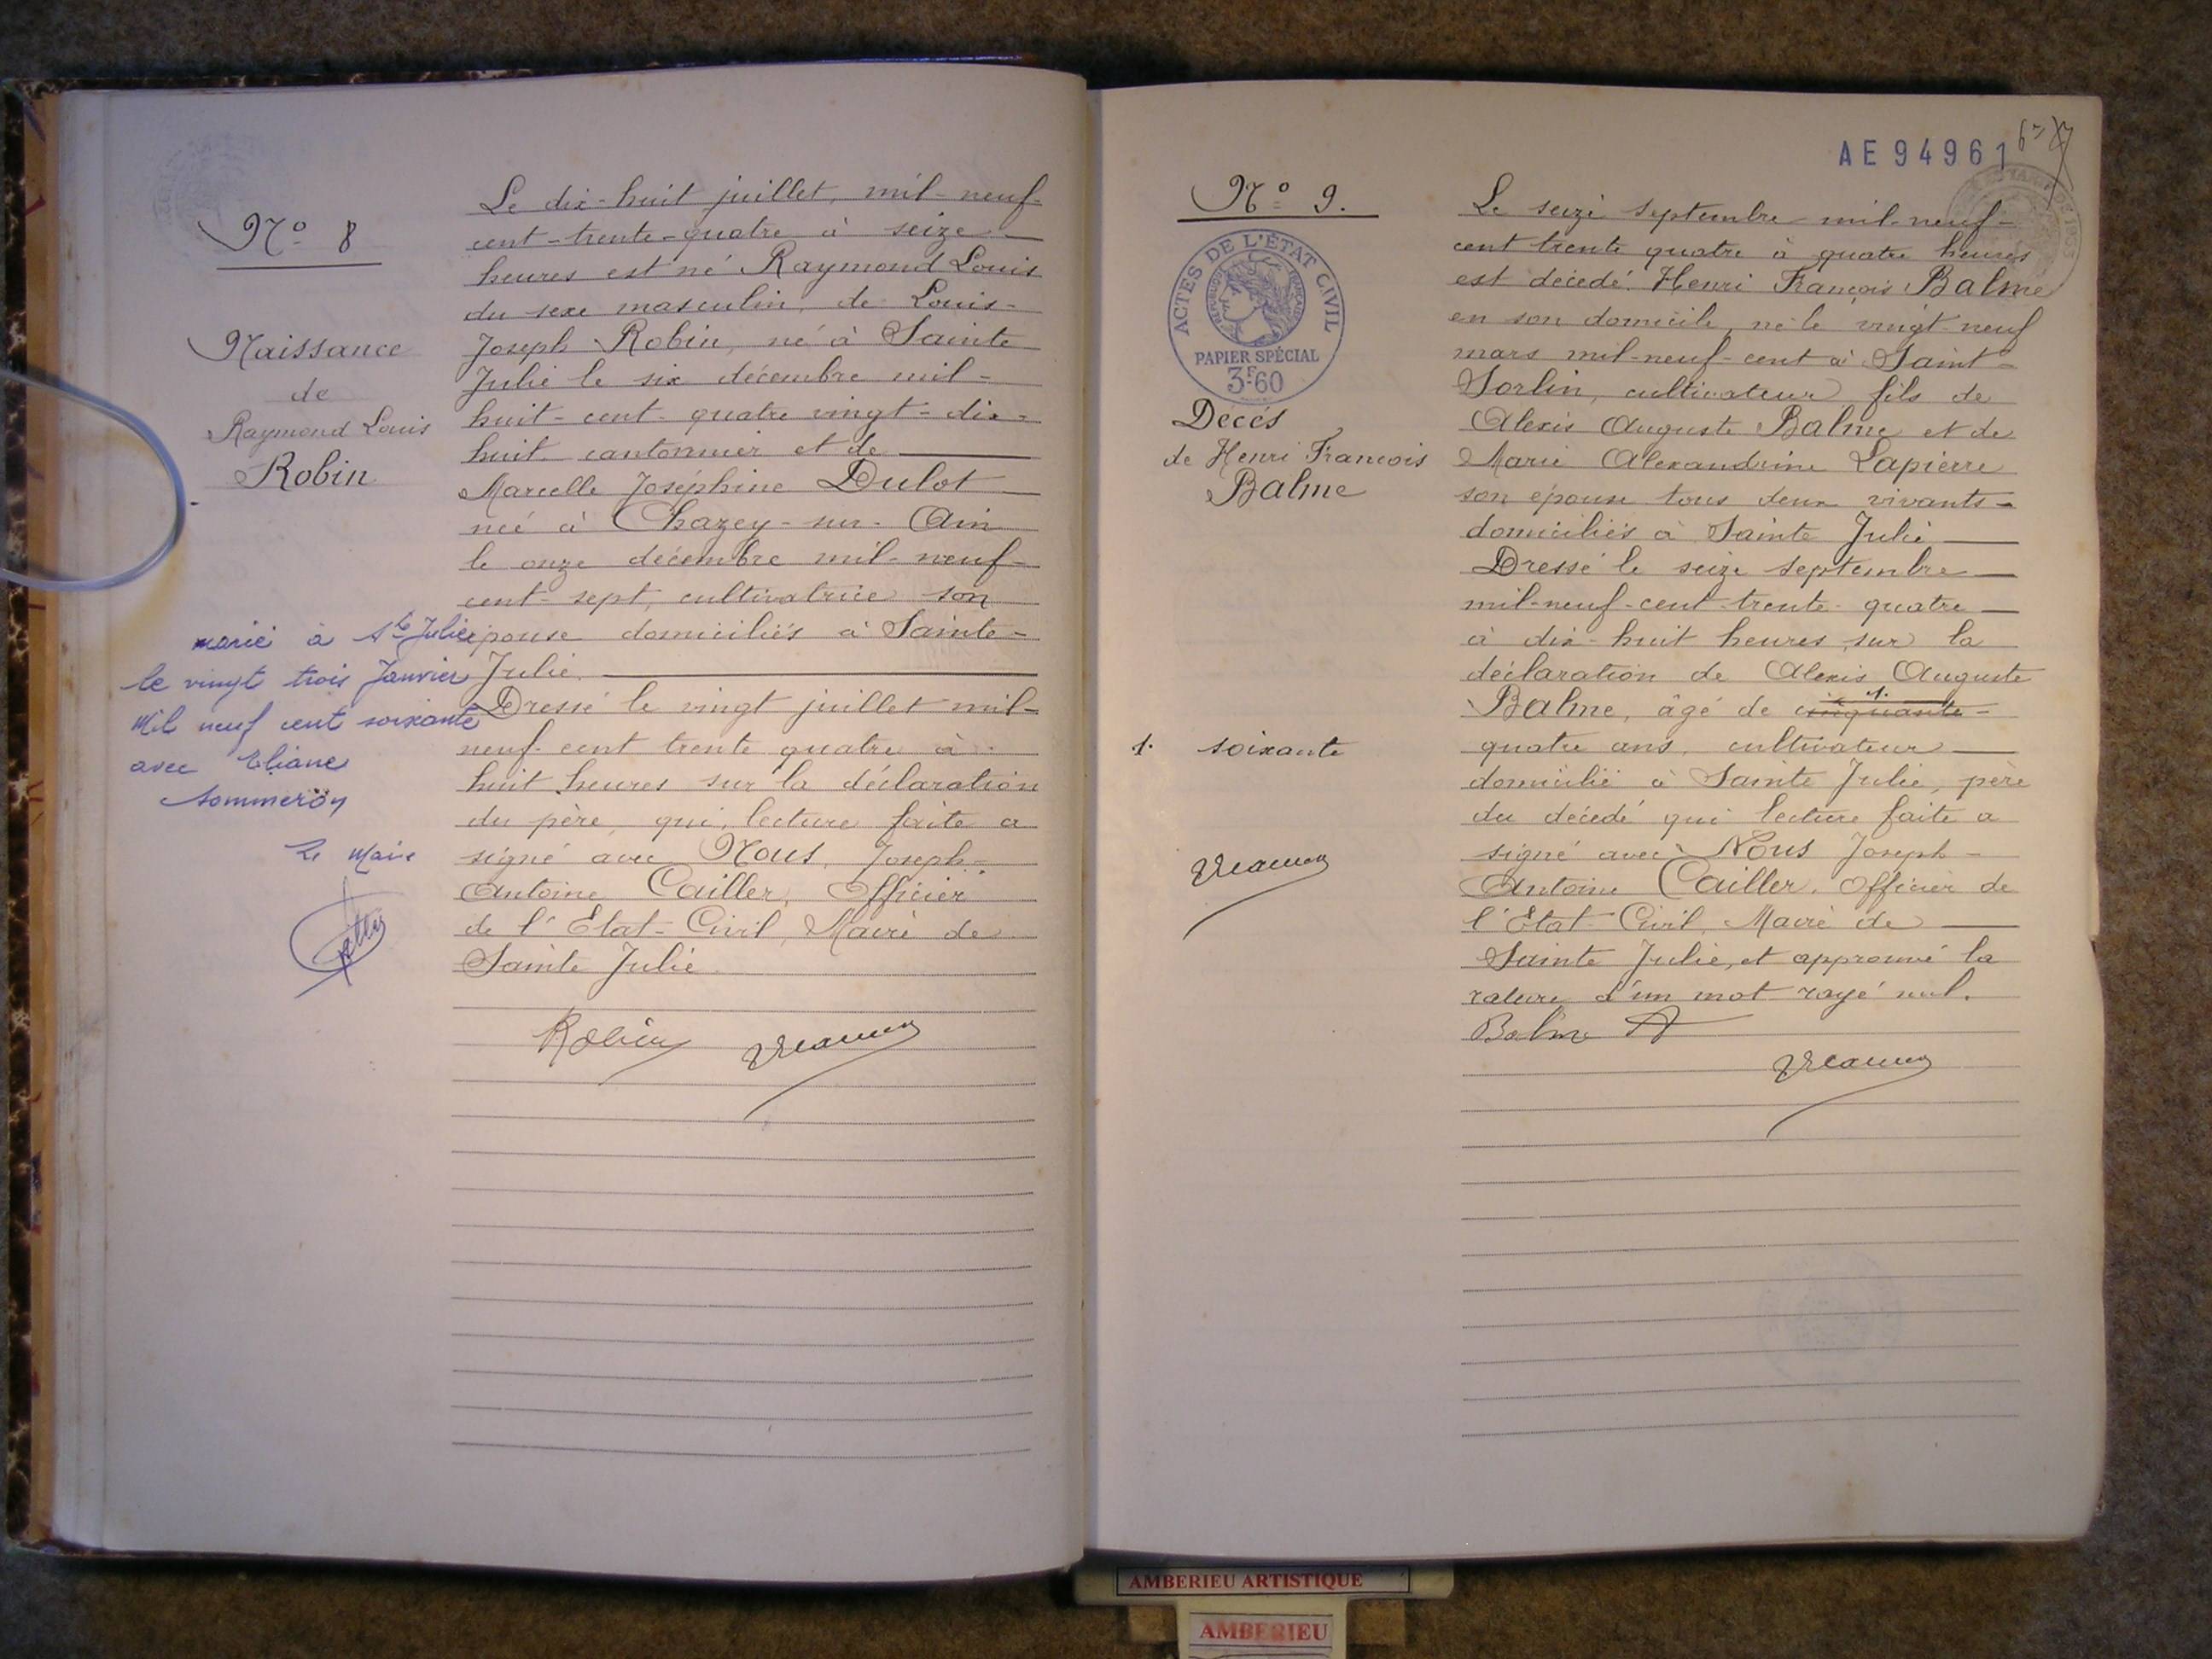 Nº 8
Naissance
de
Raymond Louis
Robin
Le dix-huit juillet, mil-neuf-
cent-trente-quatre à seize
heures est né Raymond Louis
du sexe masculin, de Louis-
Joseph Robin, né à Sainte
Julie le six décembre mil-
huit-cent-quatre vingt-dix-
huit cantonnier et de
Marcelle Joséphine Dulot
née à Chazey-sur-Ain
le onze décembre mil-neuf-
cent-sept, cultivatrice son
épouse domiciliés à Sainte-
Julie.
Dressé le vingt juillet mil-
neuf-cent trente quatre à
huit heures sur la déclaration
du père, qui, lecture faite a
signé avec Nous, Joseph-
Antoine Cailler, Officier
de l'Etat-Civil, Maire de
Sainte Julie
Robin
marié à Ste Julie
le vingt trois Janvier
Mil neuf cent soixante
avec Eliane
Sommeron
Le Maire
AE94961
Nº 9.
ACTES DE L'ÉTAT CIVIL
RÉPUBLIQUE FRANÇAISE
PAPIER SPÉCIAL
3F60
Decés
de Henri François
Balme
Le seize septembre mil-neuf-
cent trente quatre à quatre heures
est décédé Henri François Balme
en son domicile, né le vingt-neuf
mars mil-neuf-cent à Saint-
Sorlin, cultivateur fils de
Alexis Auguste Balme et de
Marie Alexandrine Lapierre
son épouse tous deux vivants
domiciliés à Sainte Julie
Dressé le seize septembre
mil-neuf-cent-trente-quatre
à dix-huit heures, sur la
déclaration de Alexis Auguste
Balme, âgé de cinquante- 1.
quatre ans, cultivateur
domicilié à Sainte Julie, père
du décédé qui lecture faite a
signé avec Nous Joseph-
Antoine Cailler, Officier de
l'Etat-Civil, Maire de
Sainte Julie, et approuvé la
rature d'un mot rayé nul.
Balme A
1. soixante
AMBERIEU ARTISTIQUE
AMBERIEU